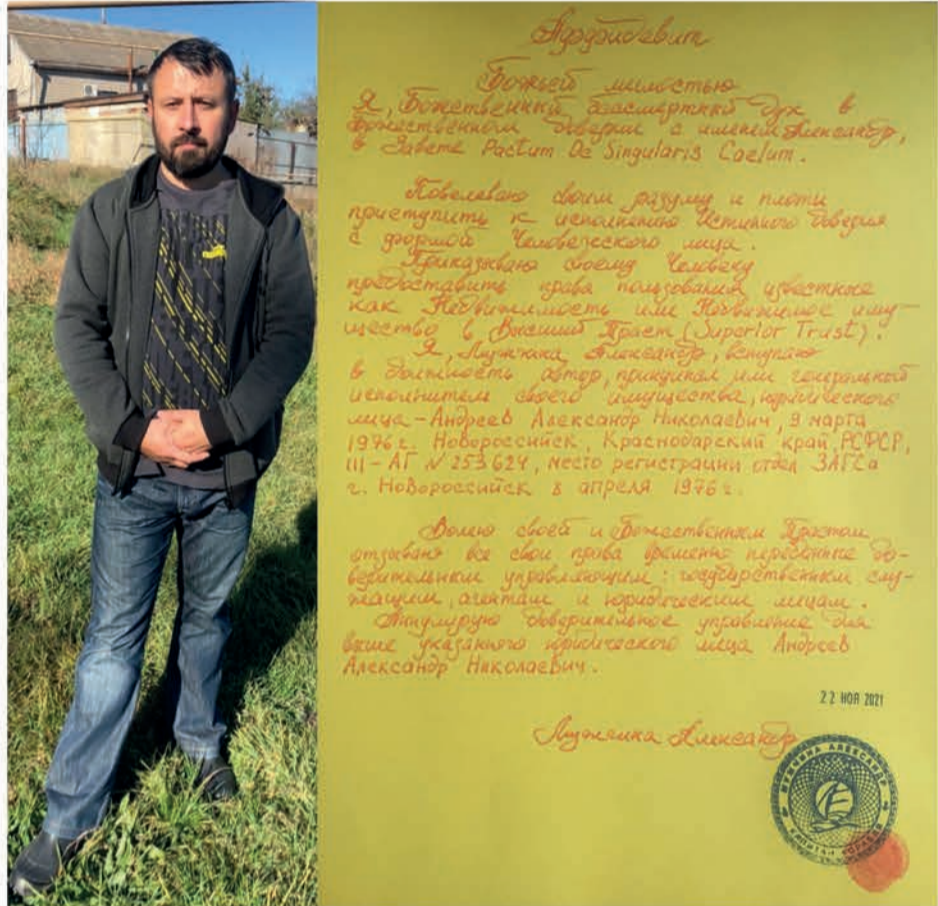 Аффидевит
Божьей милостью
Я, Божественный бессмертный дух в
Божественном доверии с именем Александр,
в Завете Pactum De Singularis Caelum.
Повелеваю своим разуму и плоти
приступить к исполнению Истинного доверия
с формой Человеческого лица.
Приказываю своему Человеку
предоставить права пользования известное
как Недвижимость или Недвижимое иму-
щество в Высший Траст (Superior Trust).
Я, Александр, вступаю
в должность автор, принципал или генеральной
исполнителем своего имущества, юридического
лица - Андреев Александр Николаевич, 9 марта
1976 г. Новороссийск, Краснодарский край, РСФСР,
III - АГ N 253624, место регистрации отдел ЗАГСа
г. Новороссийск 8 апреля 1976 г.
Волею своей и Божественным Трастом
отзываю все свои права временно переданные до-
верительным управляющим: государственным слу-
жащим, агентам и юридическим лицам.
Аннулирую доверительное управление для
выше указанного юридического лица Андреев
Александр Николаевич.
22 НОЯ 2021
Александр
АЛЕКСАНДР